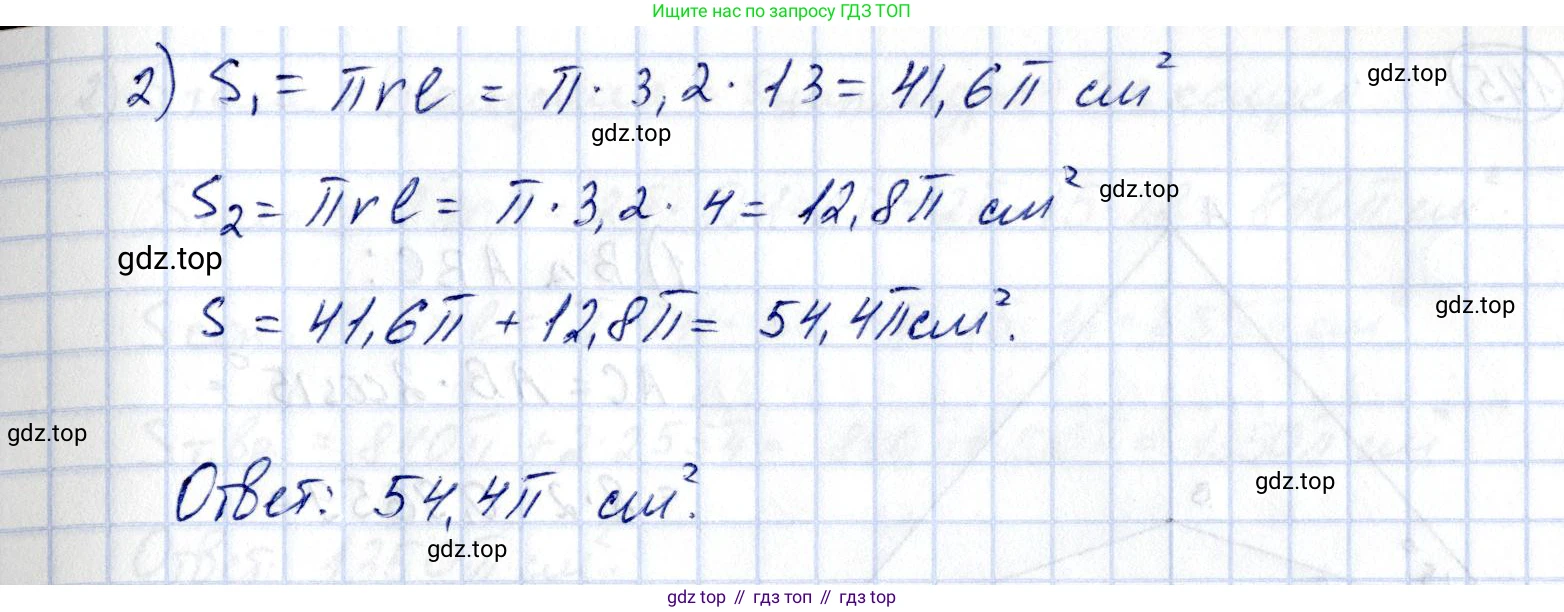 Ищите нас по запросу ГДЗ ТОП
2) S₁ = πrl = π · 3,2 · 13 = 41,6π см²
gdz.top
gdz.top
S₂ = πrl = π · 3,2 · 4 = 12,8π см²
gdz.top
gdz.top
S = 41,6π + 12,8π = 54,4π см².
gdz.top
gdz.top
Ответ: 54,4π см².
gdz.top
gdz.top
gdz top // гдз топ // gdz.top